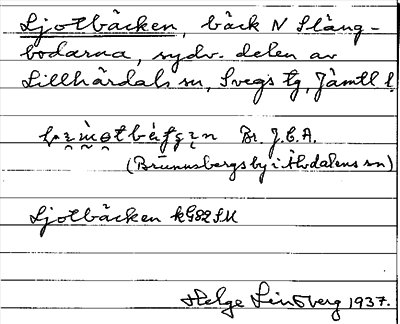 Ljotbäcken, bäck N Släng-
bodarna, sydv. delen av
Lillhärdals sn, Svegs tg, Jämtl l.
Br. J.E.A.
(Brunnsbergs by i Älvdalens sn)
Ljotbäcken kG82SU
Helge Lindberg 1937.